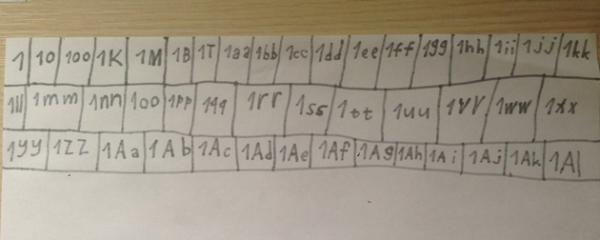 1 10 100 1K 1M 1B 1T 1aa 1bb 1cc 1dd 1ee 1ff 1gg 1hh 1ii 1jj 1kk
1ll 1mm 1nn 1oo 1pp 1qq 1rr 1ss 1tt 1uu 1vv 1ww 1xx
1yy 1zz 1Aa 1Ab 1Ac 1Ad 1Ae 1Af 1Ag 1Ah 1Ai 1Aj 1Ak 1Al